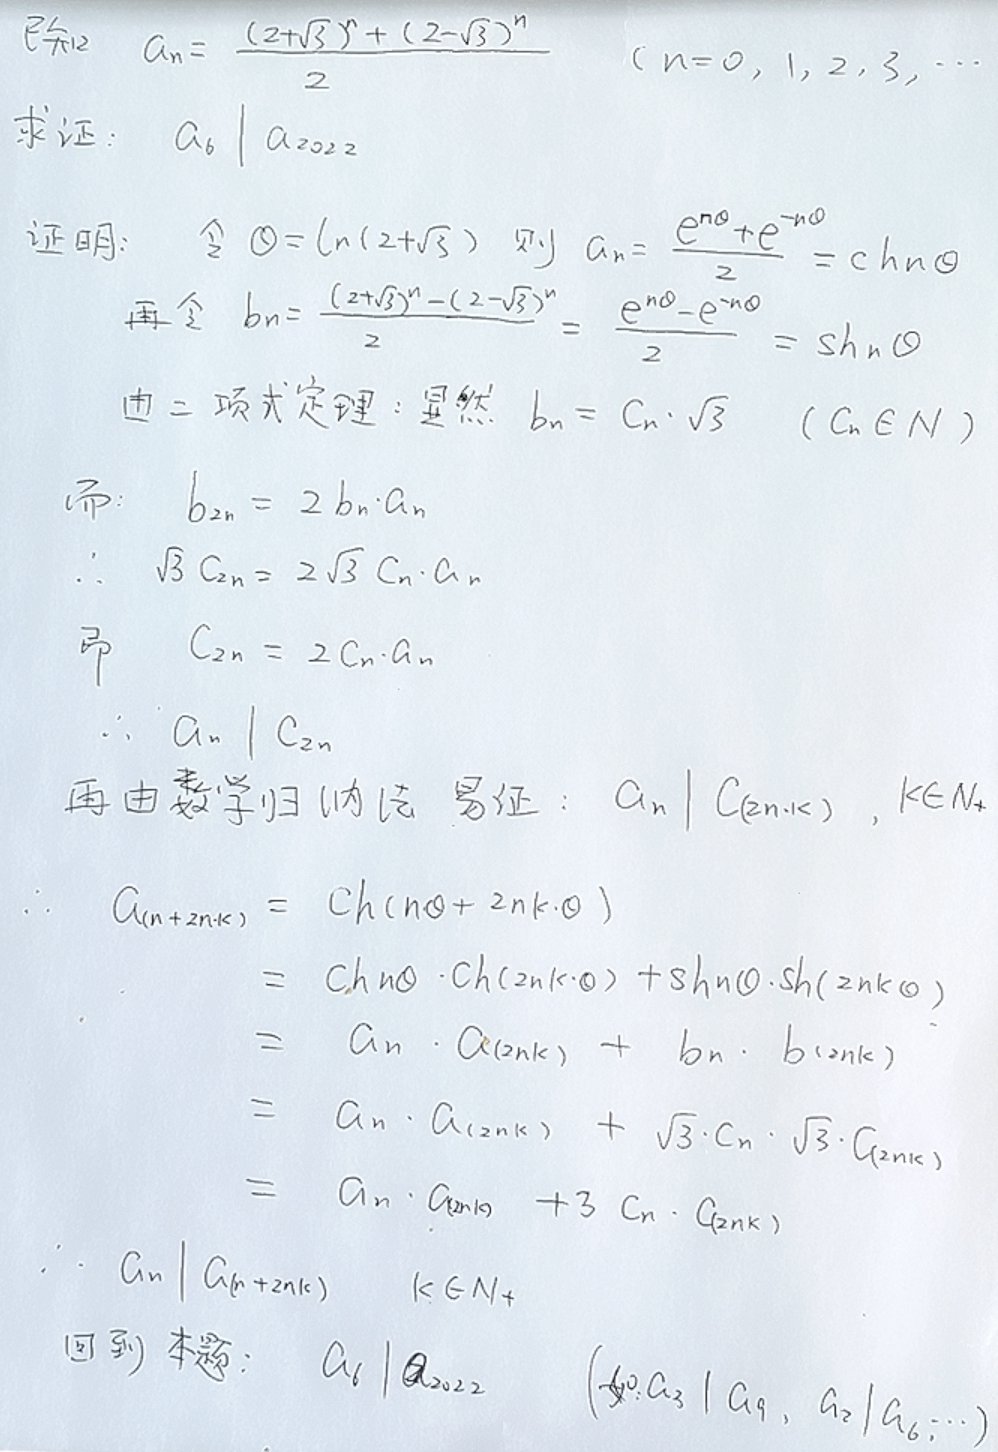 已知 aₙ = ((2+√3)ⁿ + (2-√3)ⁿ)/2 (n=0, 1, 2, 3, ⋯
求证: a₆ | a₂₀₂₂
证明: 令 θ=ln(2+√3) 则 aₙ = (e^{nθ}+e^{-nθ})/2 = chnθ
再令 bₙ = ((2+√3)ⁿ-(2-√3)ⁿ)/2 = (e^{nθ}-e^{-nθ})/2 = shnθ
由二项式定理: 显然 bₙ = Cₙ·√3 (Cₙ∈N)
而: b₂ₙ = 2bₙ·aₙ
∴ √3 C₂ₙ = 2√3 Cₙ·aₙ
即 C₂ₙ = 2Cₙ·aₙ
∴ aₙ | C₂ₙ
再由数学归纳法易证: aₙ | C_{(2n·k)}, k∈N₊
∴ a_{(n+2n·k)} = ch(nθ+2nk·θ)
= chnθ·ch(2nk·θ)+shnθ·sh(2nkθ)
= aₙ·a_{(2nk)} + bₙ·b_{(2nk)}
= aₙ·a_{(2nk)} + √3·Cₙ·√3·C_{(2nk)}
= aₙ·a_{(2nk)} +3Cₙ·C_{(2nk)}
∴ aₙ | a_{(n+2nk)} k∈N₊
回到本题: a₆ | a₂₀₂₂ (如:a₃ | a₉, a₂ | a₆,⋯)